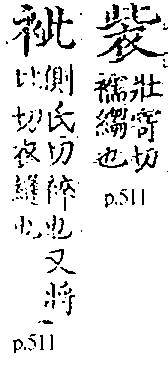 壯寄切
襦縐也
p.511
側氏切也又將
比切衣縫也
p.511